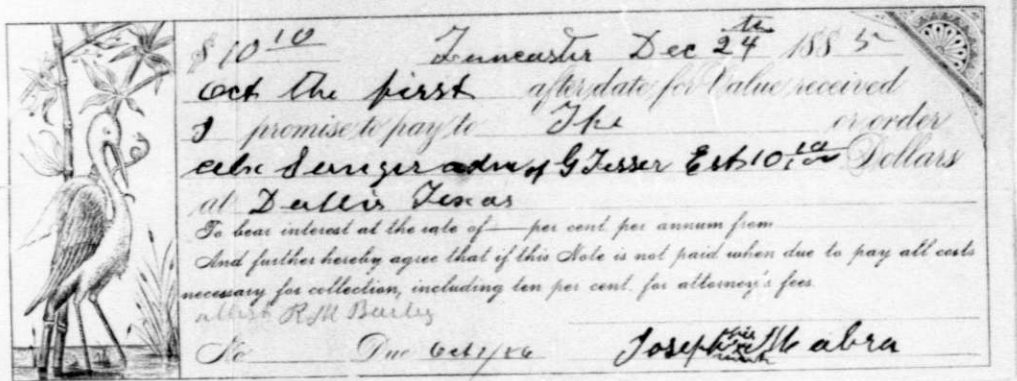 $10 10 Lancaster Dec 24th 1885
Oct the first after date for Value received
I promise to pay to The or order
adm of G Est 10 10/100 Dollars
at Dallis Texas
To bear interest at the rate of — per cent per annum from
And further hereby agree that if this Note is not paid when due to pay all costs
necessary for collection, including ten per cent. for attorney's fees
attest R M
No Due Oct 1/86
Joseph his x mark Mc abra